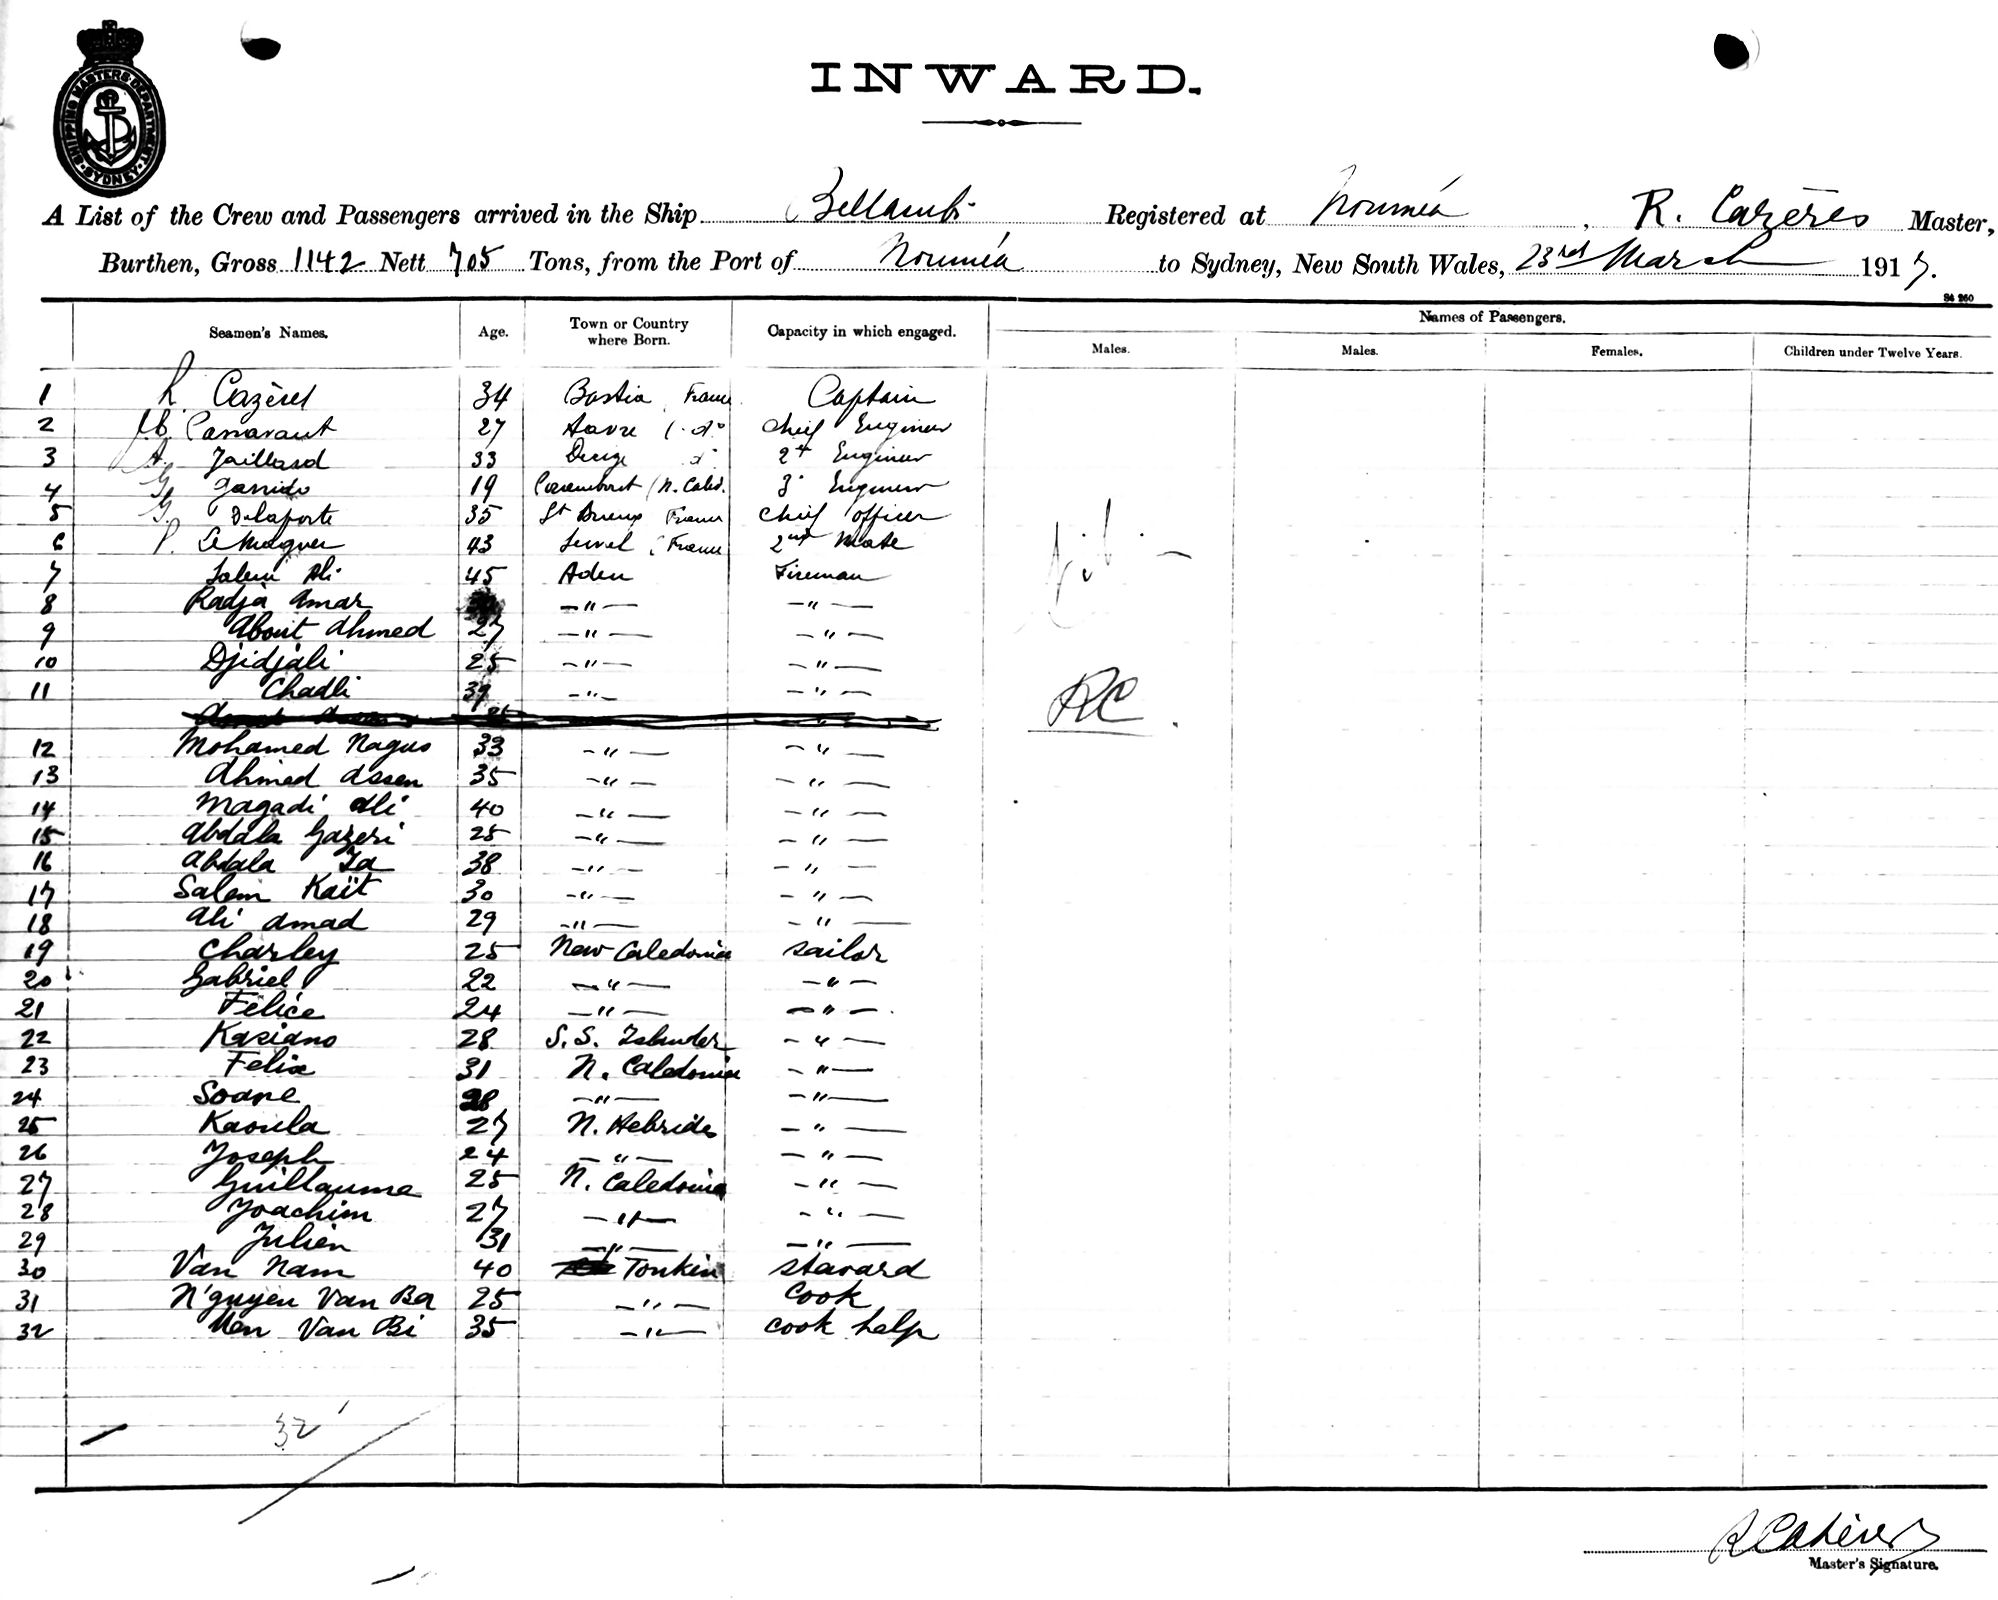 SHIPPING MASTERS DEPARTMENT · SYDNEY ·
INWARD.
A List of the Crew and Passengers arrived in the Ship Bellambi Registered at Nouméa, R. Cazères Master,
Burthen, Gross 1142 Nett 705 Tons, from the Port of Nouméa to Sydney, New South Wales, 23rd March 1917.
S4 260
Seamen's Names. Age. Town or Country where Born. Capacity in which engaged. Names of Passengers.
Males. Males. Females. Children under Twelve Years.
1 R. Cazères 34 Bastia France Captain
2 27 Havre do Chief Engineer
3 A. Jaillard 33 do 2d Engineer
4 G. Garrido 19 (N. Caled. 3d Engineer
5 G. Delaporte 35 St Brieuc France Chief officer
6 P. Le Maguer 43 (France 2nd Mate
7 Salem Ali 45 Aden Fireman
8 Radja Amar —"— —"—
9 About Ahmed 27 —"— —"—
10 Djidjali 25 —"— —"—
11 Chadli 39 —"— —"—
12 Mohamed Nagus 33 —"— —"—
13 Ahmed Assen 35 —"— —"—
14 Magadi Ali 40 —"— —"—
15 Abdala Gazeri 25 —"— —"—
16 Abdala Za 38 —"— —"—
17 Salem Kaït 30 —"— —"—
18 Ali Amad 29 —"— —"—
19 Charley 25 New Caledonia sailor
20 Gabriel 22 —"— —"—
21 Félice 24 —"— —"—
22 Kasiano 28 S.S. Islander —"—
23 Felix 31 N. Caledonia —"—
24 Soane 28 —"— —"—
25 Kaoula 27 N. Hebrides —"—
26 Joseph 24 —"— —"—
27 Guillaume 25 N. Caledonia —"—
28 Joachim 27 —"— —"—
29 Julien 31 —"— —"—
30 Van Nam 40 Tonkin stavard
31 N'guyen Van Ba 25 —"— Cook
32 Van Bi 35 —"— cook help
Nil
RC
32
R Cazères
Master's Signature.